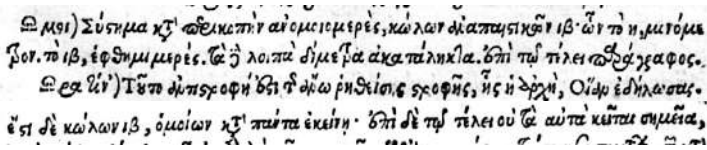 Ὤ μοι) Σύστημα κατὰ περικοπὴν ἀνομοιομερὲς, κώλων ἀναπαιστικῶν ιβ· ὧν τὸ η, μονόμε
τρον. τὸ ιβ, ἑφθημιμερές. τὰ δὲ λοιπὰ δίμετρα ἀκατάληκτα. ἐπὶ τῷ τέλει παράγραφος.
Ὥρα νῦν) Τοῦτο ἀντιστροφή ἐστι τῆς ἄνω ῥηθείσης στροφῆς, ἧς ἡ ἀρχὴ, Οἵαν ἐδήλωσας.
ἔστι δὲ κώλων ιβ, ὁμοίων κατὰ πάντα ἐκείνῃ· ἐπὶ δὲ τῷ τέλει οὐ τὰ αὐτὰ κεῖται σημεῖα,